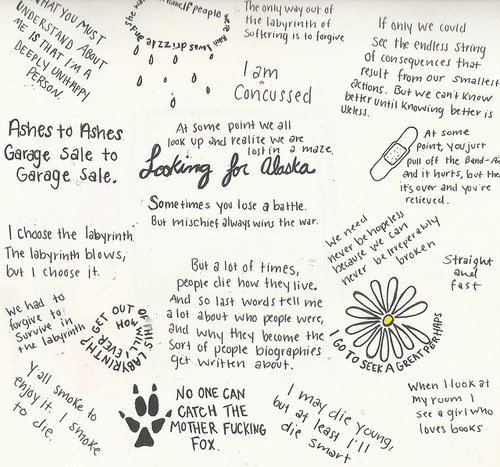 WHAT YOU MUST
UNDERSTAND ABOUT
ME IS THAT I'M A
DEEPLY UNHAPPY
PERSON.
if people were Rain I was drizzle
she was
The only way out of
the labyrinth of
Suffering is to forgive
I am
Concussed
If only we could
See the endless string
of consequences that
result from our smallest
actions. But we can't know
better until knowing better is
useless.
Ashes to Ashes
Garage Sale to
Garage Sale.
At some point we all
look up and realize we are
lost in a maze
Looking for Alaska
Sometimes you lose a battle.
But mischief always wins the war.
At some
Point, you just
pull off the Band-Aid
and it hurts, but then
it's over and you're
relieved.
I choose the labyrinth
The labyrinth blows,
but I choose it.
But a lot of times,
people die how they live.
And so last words tell me
a lot about who people were,
and why they become the
Sort of people biographies
get written about.
We need
never be hopeless
because we can
never be irreperably
broken
Straight
and
fast
We had to
forgive to
Survive in
the labyrinth
HOW WILL I EVER GET OUT OF THIS LABYRINTH?
I GO TO SEEK A GREAT PERHAPS
Y'all smoke to
enjoy it. I smoke
to die.
NO ONE CAN
CATCH THE
MOTHER FUCKING
FOX.
I may die young,
but at least I'll
die smart
When I look at
my room I
see a girl who
loves books